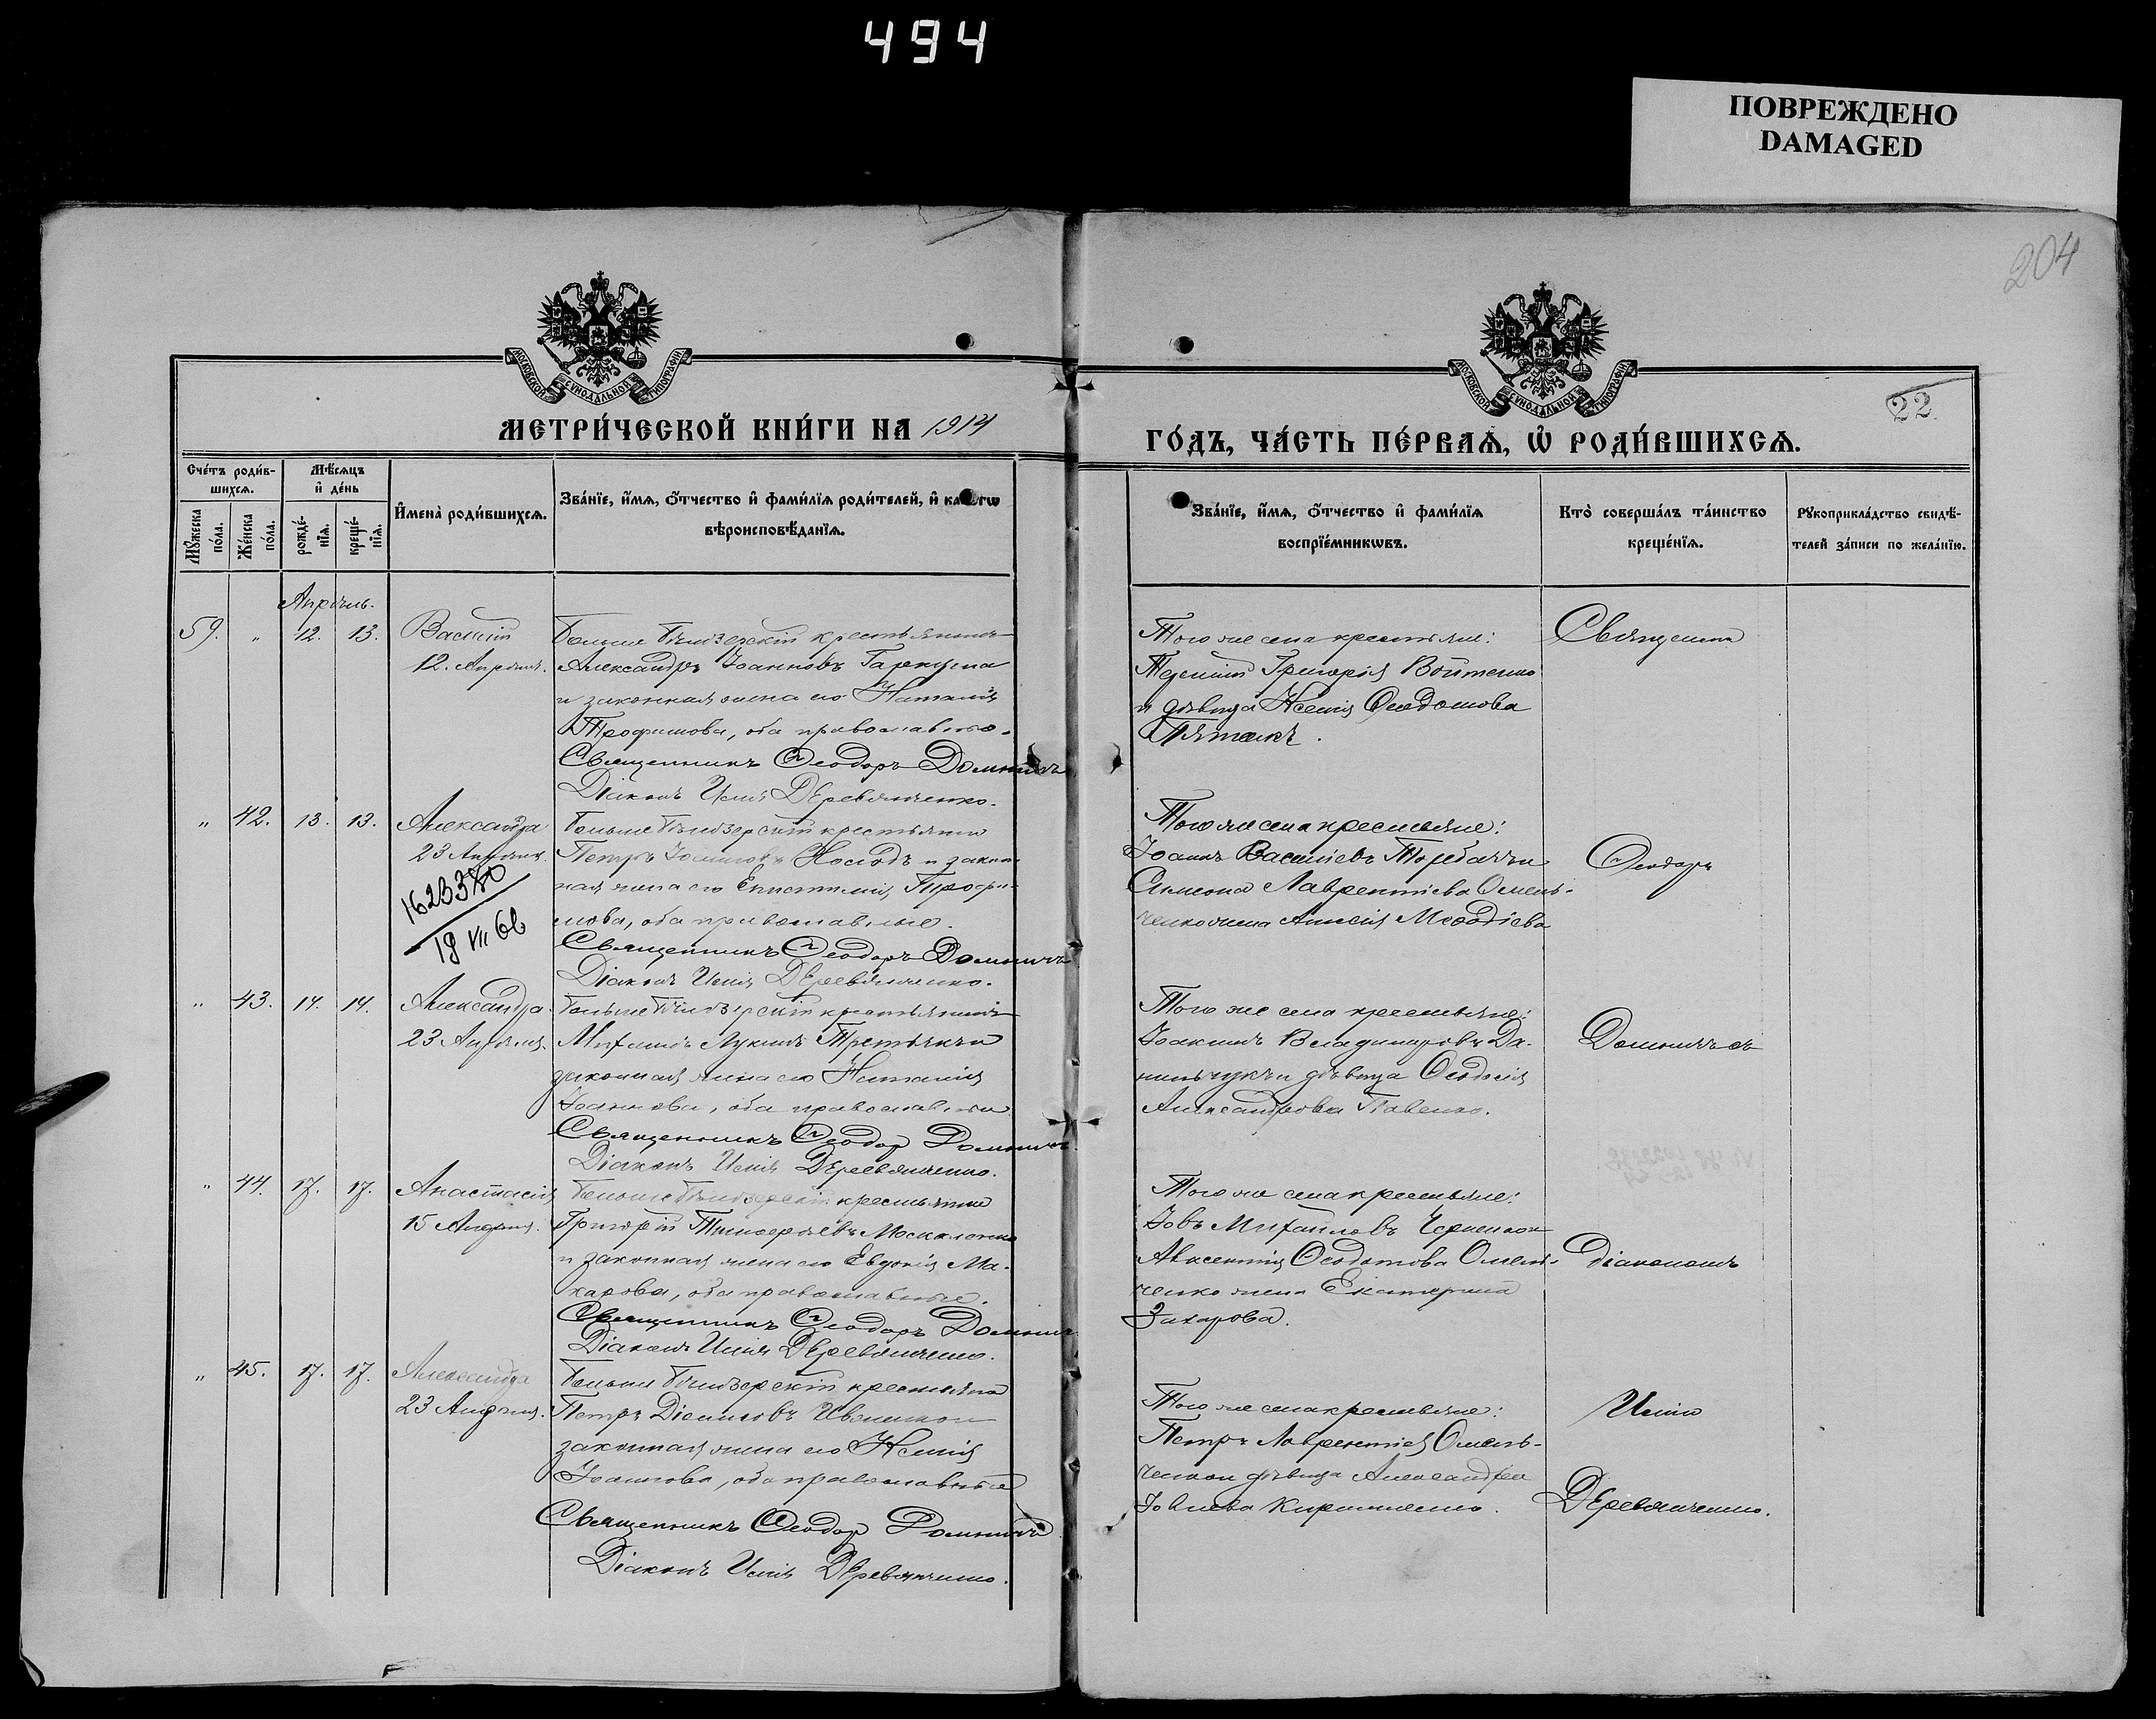 494
ПОВРЕЖДЕНО
DAMAGED
204
МОСКОВСКОЙ СѴНОДАЛЬНОЙ ТИПОГРАФІИ
МОСКОВСКОЙ СѴНОДАЛЬНОЙ ТИПОГРАФІИ
22.
МЕТРИ́ЧЕСКОЙ КНИ́ГИ НА 1914
ГО́ДЪ, ЧА́СТЬ ПЕ́РВАѦ, Ѡ҆ РОДИ́ВШИХСѦ.
Сче́тъ роди́в-
шихсѧ.
Мѣ́сѧцъ
и҆ де́нь
Мꙋ́жеска
по́ла.
Же́нска
по́ла.
рожде́-
нїѧ.
креще́-
нїѧ.
И҆мена̀ роди́вшихсѧ.
Зва́нїе, и҆́мѧ, ѻ҆́тчество и҆ фами́лїѧ роди́телей, и҆ ка
вѣроисповѣ́данїѧ.
Зва́нїе, и҆́мѧ, ѻ҆́тчество и҆ фами́лїѧ
воспрїе́мникѡвъ.
Кто̀ соверша́лъ та́инство
креще́нїѧ.
Рꙋкоприкла́дство свидѣ́-
телей за́писи по жела́нїю.
Апрѣль.
59. " 12. 13. Василій
12. Апрѣля.
Больше Бѣлозерскій крестьянинъ
Александръ Іоанновъ Гаркуша
и законная жена его Наталія
Трофимова, оба православные.
Священникъ Ѳеодоръ
Діаконъ Илія Деревянченко.
Того же села крестьяне:
Григорія Войтенко
и дѣвица Ксенія Ѳеодотова
Пятакъ.
Священникъ
" 42. 13. 13. Александра
23 Апрѣля.
1623380
19 VII 66
Больше Бѣлозерскій крестьянинъ
Петръ Іоанновъ и закон-
ная жена его Епистимія Трофи-
мова, оба православные.
Священникъ Ѳеодоръ
Діаконъ Илія Деревянченко.
Того же села крестьяне:
Іоаннъ Васильевъ и
Симеона Лаврентіева Омель-
ченко жена Меѳодіева
Ѳеодоръ
" 43. 14. 14. Александра.
23 Апрѣля.
Больше Бѣлозерскій крестьянинъ
Михаилъ Лукинъ Третьякъ и
законная жена его Наталія
Іоаннова, оба православные
Священникъ Ѳеодор
Діаконъ Илія Деревянченко.
Того же села крестьяне:
Іоакимъ Владимировъ Да-
нильчукъ и дѣвица Ѳеодосія
Александрова
" 44. 17. 17. Анастасія
15 Апрѣля.
Больше Бѣлозерскій крестьянинъ
Григорій Тимоѳеевъ Москаленко
и законная жена его Евдокія Ма-
карова, оба православные.
Священникъ Ѳеодоръ
Діаконъ Илія Деревянченко.
Того же села крестьяне:
Іовъ Михайловъ и
Авксентія Ѳеодотова Омель-
ченко жена Екатерина
Захарова.
діакономъ
" 45. 17. 17. Александра
23 Апрѣля.
Больше Бѣлозерскій крестьянинъ
Петръ Діонисовъ и
законная жена его Ксенія
Іоаннова, оба православные
Священникъ Ѳеодор
Діаконъ Илія Деревянченко.
Того же села крестьяне:
Петръ Лаврентіев Омель-
ченко и дѣвица Александра
Іовлева Кириченко.
Иліею
Деревянченко.